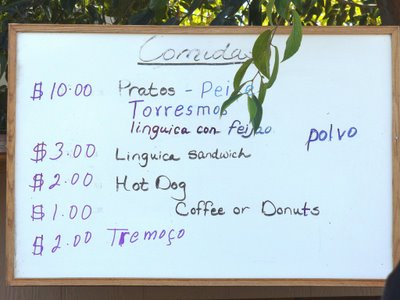 Comida
$10.00 Pratos - Peixe
Torresmos
linguica con feijao
polvo
$3.00 Linguica sandwich
$2.00 Hot Dog
$1.00 Coffee or Donuts
$2.00 Tremoço